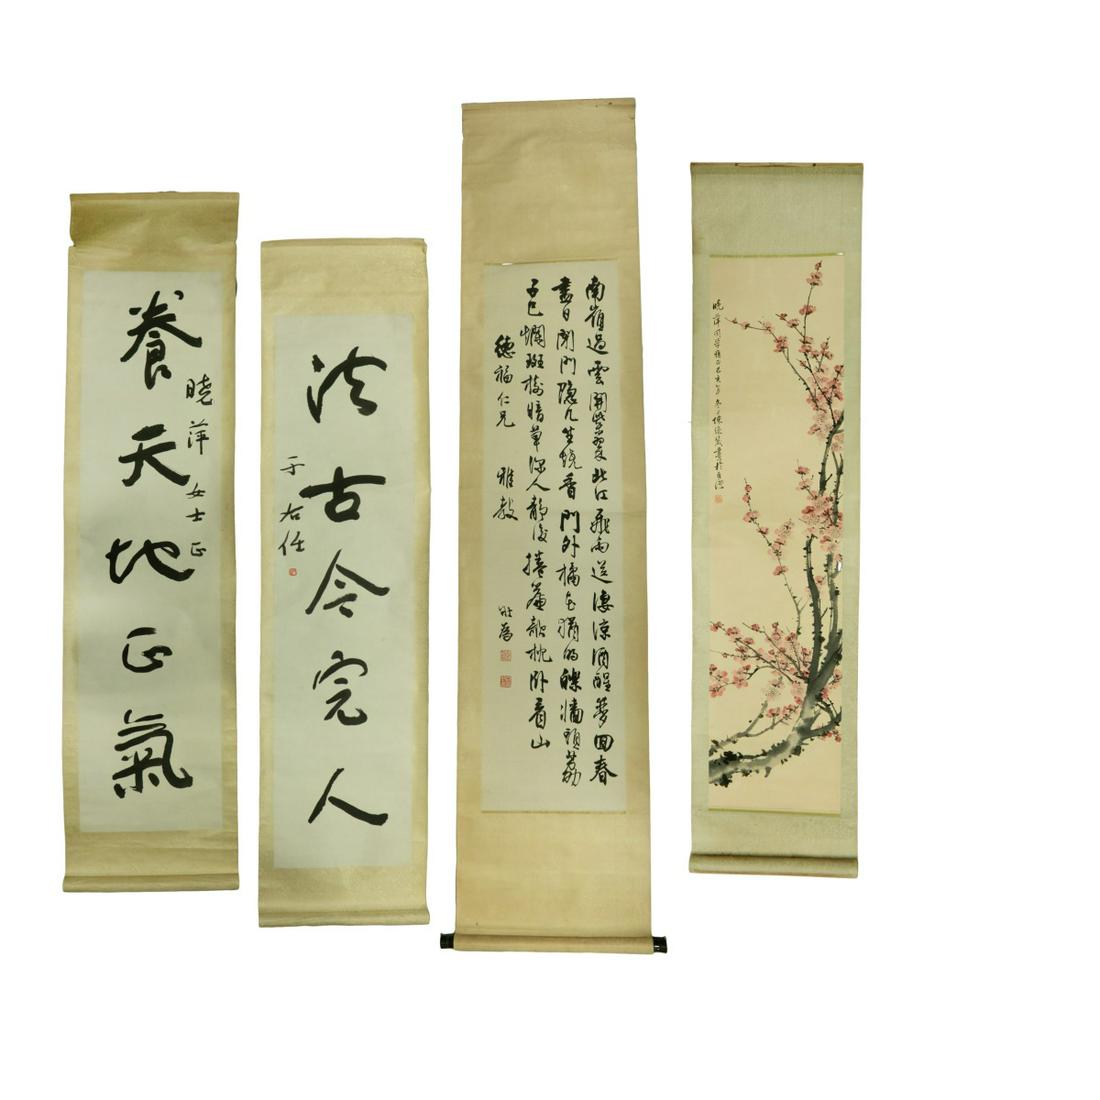 養天地正氣
曉萍女士正
法古今完人
于右任
南嶺過雲開紫翠北江飛雨送淒涼酒醒夢回春
盡日閉門隱几坐燒香門外橘花猶的皪牆頭荔
子已斕斑樹暗草深人靜處捲簾欹枕臥看山
德福仁兄 雅教
曉萍同學